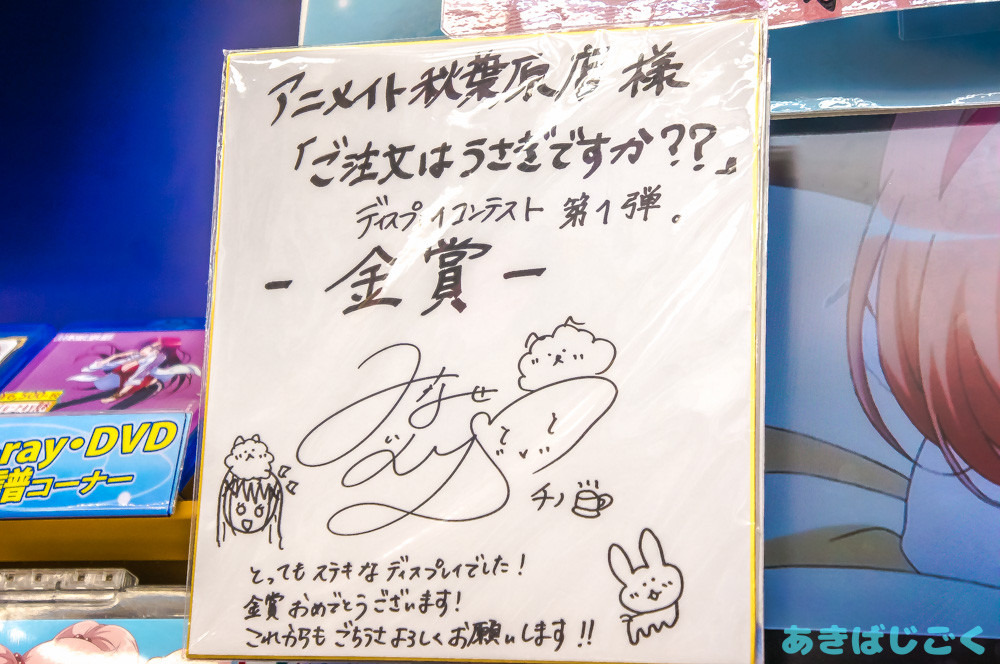 アニメイト秋葉原店 様
「ご注文はうさぎですか??」
ディスプレイコンテスト 第1弾。
- 金賞 -
みなせ
チノ
とってもステキなディスプレイでした!
金賞おめでとうございます!
これからもごちうさよろしくお願いします!!
ray・DVD
譜コーナー
あきばじごく